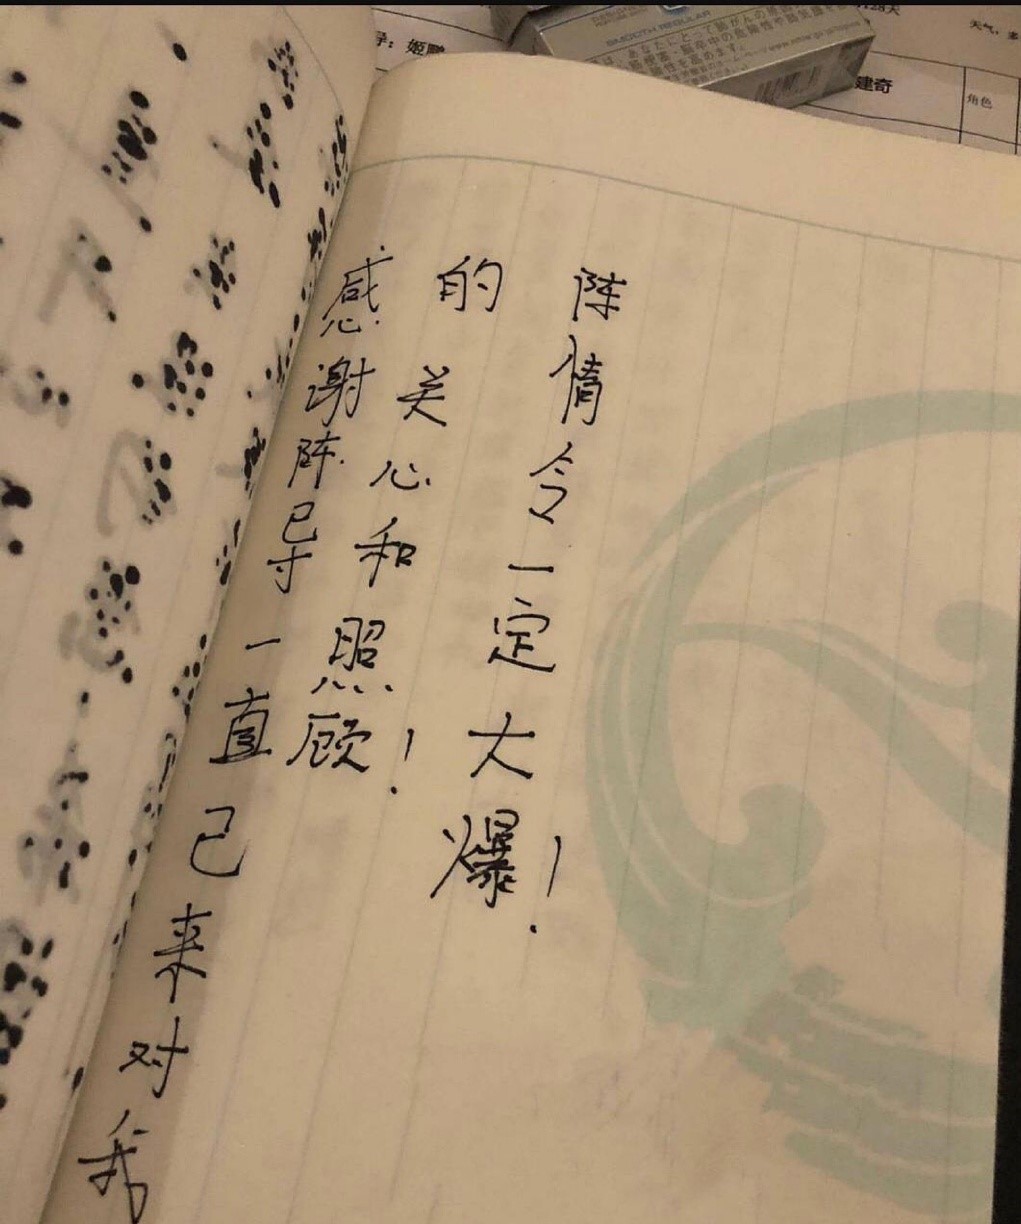 SMOOTH REGULAR
建奇
角色
感谢陈导一直己来对我
的关心和照顾！
陈情令一定大爆！